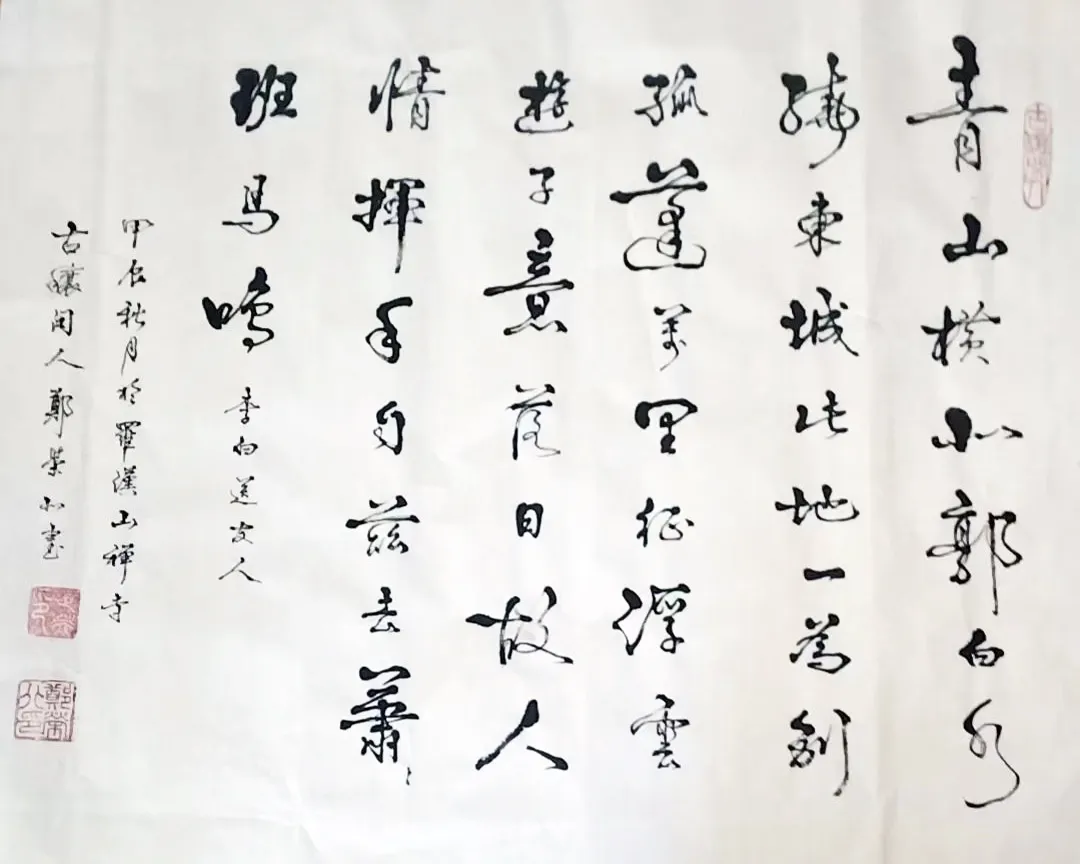 青山橫北郭白水
繞東城此地一為別
孤蓬萬里征浮雲
遊子意落日故人
情揮手自茲去蕭〻
班馬鳴 李白送友人
甲辰秋月於羅漢山禪寺
古穰闲人鄭榮北書